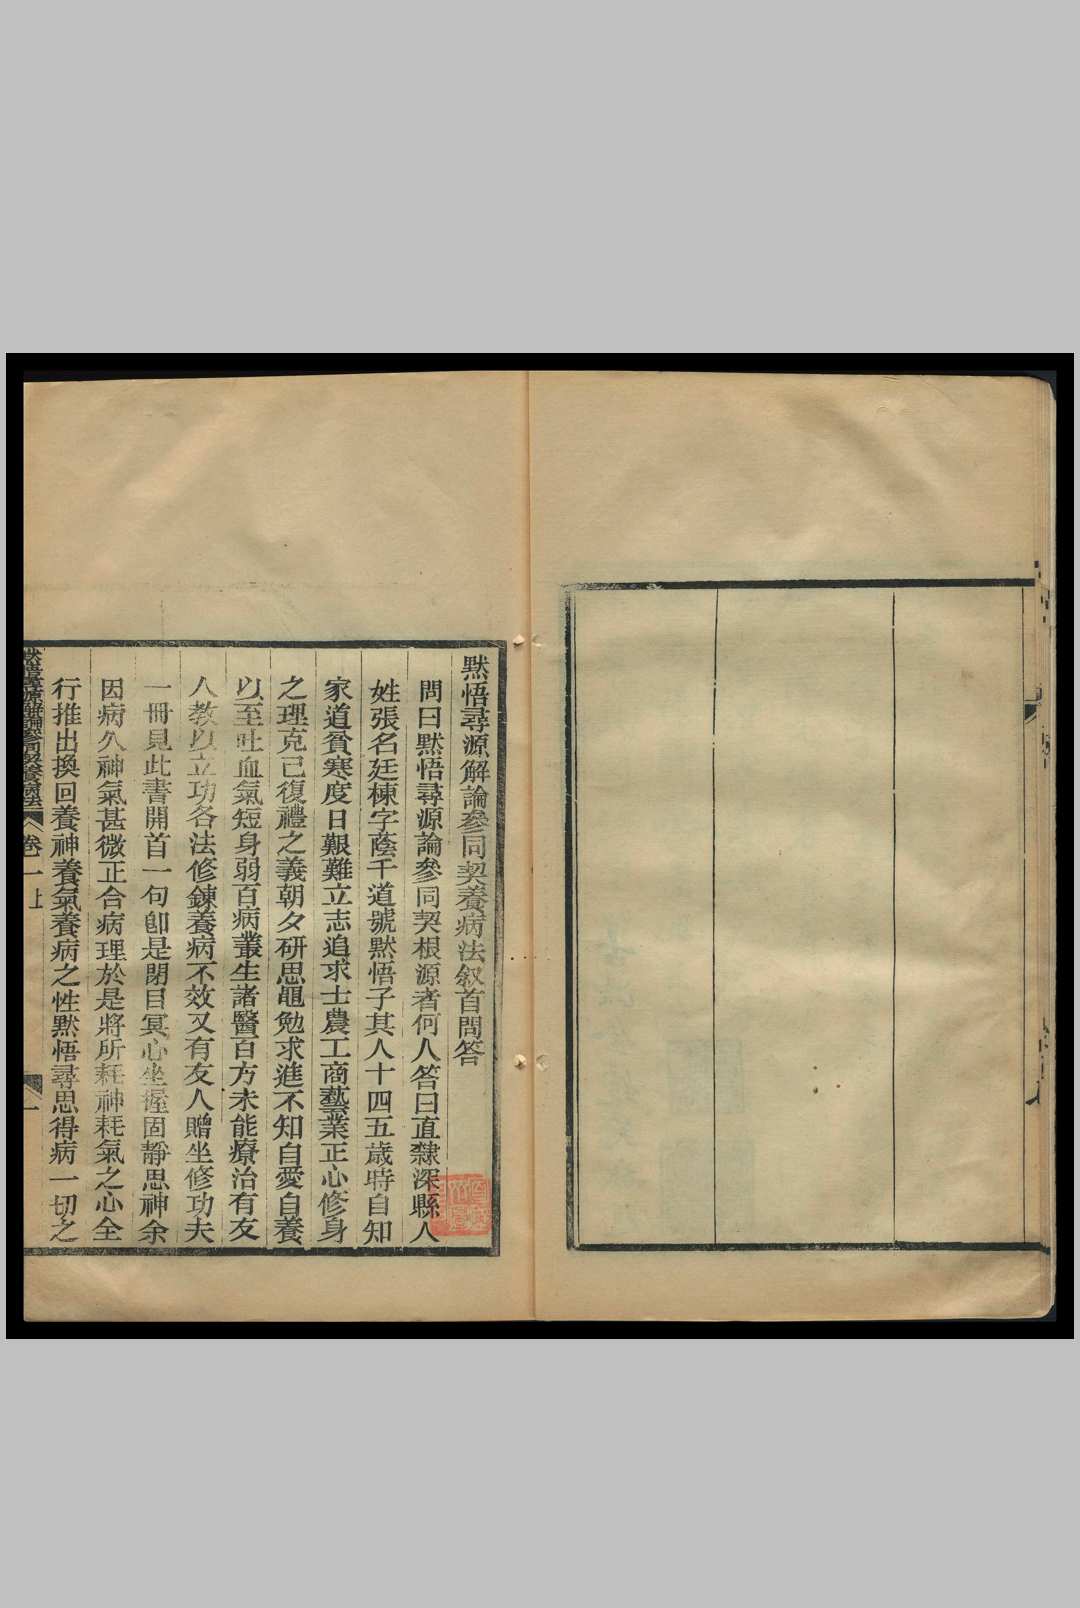 默悟尋源解論參同契養病法叙首問答
問曰默悟尋源論參同契根源者何人答曰直隸深縣人
姓張名廷棟字蔭千道號默悟子其人十四五歲時自知
家道貧寒度日艱難立志追求士農工商藝業正心修身
之理克己復禮之義朝夕研思黽勉求進不知自愛自養
以至吐血氣短身弱百病叢生諸醫百方未能療治有友
人教以立功各法修鍊養病不效又有友人贈坐修功夫
一冊見此書開首一句卽是閉目冥心坐握固靜思神余
因病久神氣甚微正合病理於是將所耗神耗氣之心全
行推出換回養神養氣養病之性默悟尋思得病一切之
默悟尋源解論參同契養病法
卷一上
一